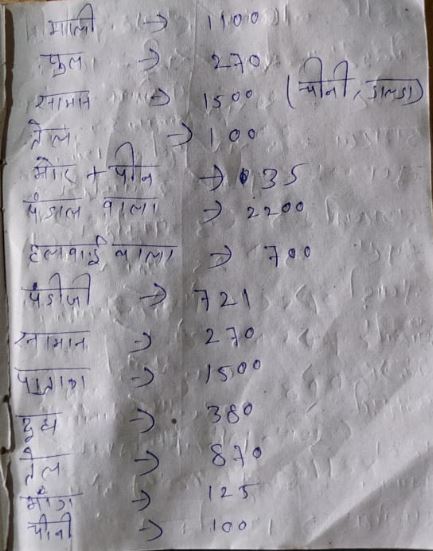 माली → 1100
फुल → 270
सामान → 1500 (चीनी, डालडा)
तेल → 100
+ पीन → 35
पंडाल वाला → 2200
हलवाई वाला → 700
पंडीजी → 721
सामान → 270
→ 1500
दुध → 380
तेल → 870
→ 125
चीनी → 100